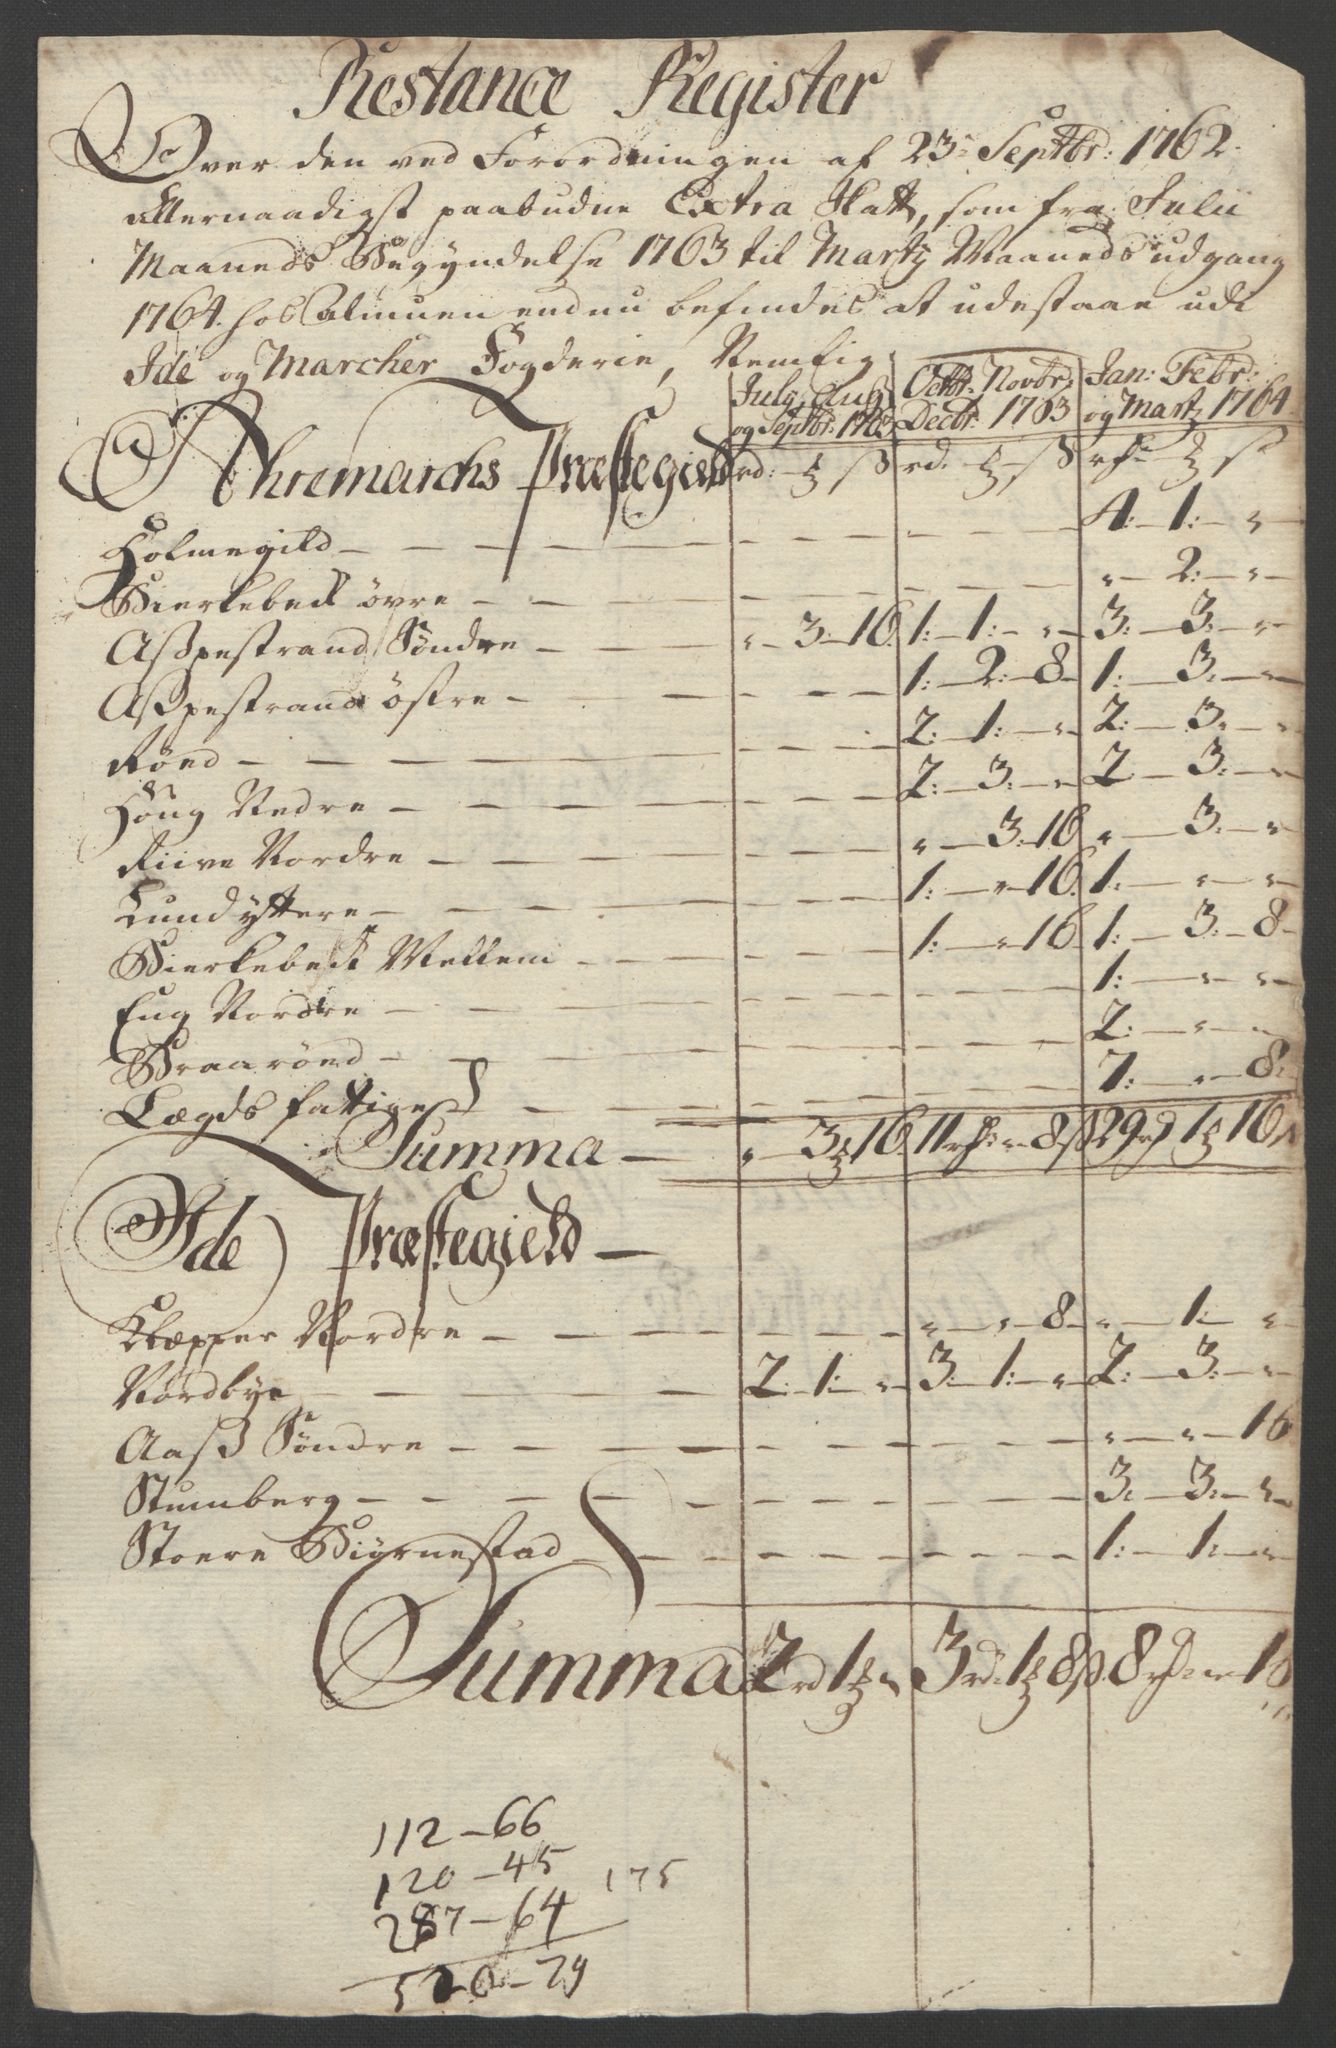 Restance Register
Over den ved Forordningen af 23de Septbr: 1762.
allernaadigst paabudne Extra Skatt, som fra Julii
Maaneds Begyndelse 1763 til Marty Maaneds udgang
1764. hos Almuen endnu befindes at udestaae udi
Ide og Marcher Fogderie, Nemlig
July, Aug: Octbr: Novbr: Jan: Febr:
og Septbr: 1763 Decbr: 1763 og Martz 1764
Ahremarchs Præstegield rd: ß rd: ß rd: ß
Holmegild — 4: 1: "
Bierkebeck øvre — " 2: "
Aspestrand Søndre — " 3 16. 1: 1: " 3: 3: "
Aspestrand østre — 1: 2: 8 1: 3: "
Rønd — 2: 1: " 2: 3: "
Houg Nedre — 2: 3: " 2 3: "
Riive Nordre — " 3: 16 " 3: "
Lund yttere — 1: " 16. 1: " "
Bierkebeck Mellem — 1: " 16 1: 3: 8
Eng Nordre — 1: " "
Braarønd — 2: " "
Lægds fattige — 7: " 8:
Summa — " 3 16. 11 rd " 8 ß 29 rd 1 16
Ide Præstegield —
Klepper Nordre — " " 8 " 1: "
Nordbye — 2: 1: " 3: 1: " 2: 3: "
Aas Søndre — " " 16
Stumberg — 3: 3: "
Stoere Biørnestad — 1: 1: "
Summa 2 rd 1 " 3 rd 1 8 ß 8 rd "
112 — 66
120 — 45 175
287 — 64
520 — 79